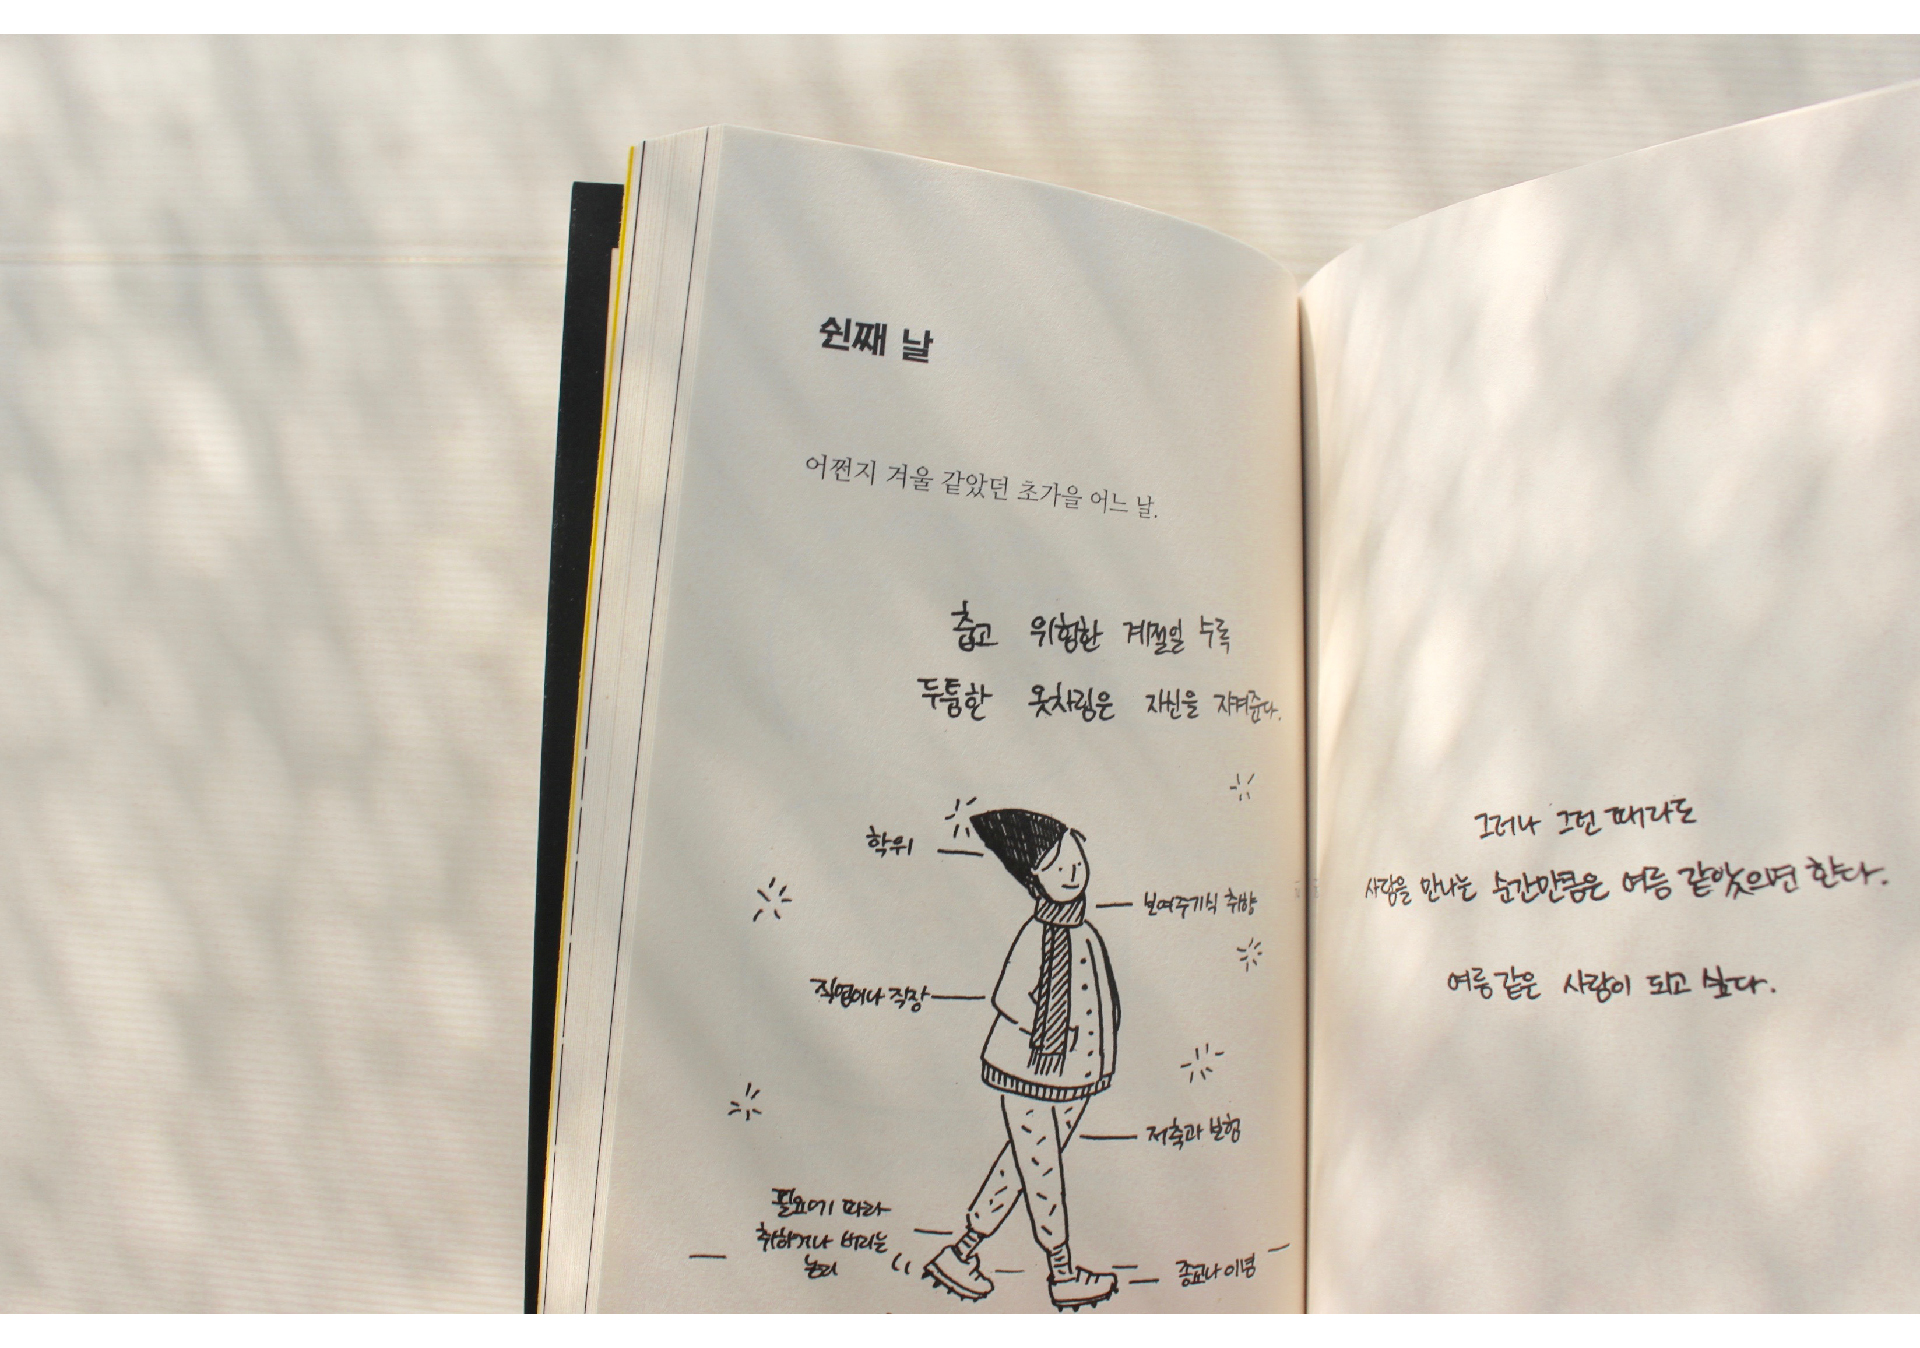 쉰째 날
어쩐지 겨울 같았던 초가을 어느 날.
춥고 위험한 계절일 수록
두툼한 옷차림은 자신을 지켜준다.
학위
보여주기식 취향
직업이나 직장
저축과 보험
필요에 따라
취하거나 버리는
논리
종교나 이념
그러나 그런 때라도
사람을 만나는 순간만큼은 여름 같았으면 한다.
여름 같은 사람이 되고 싶다.